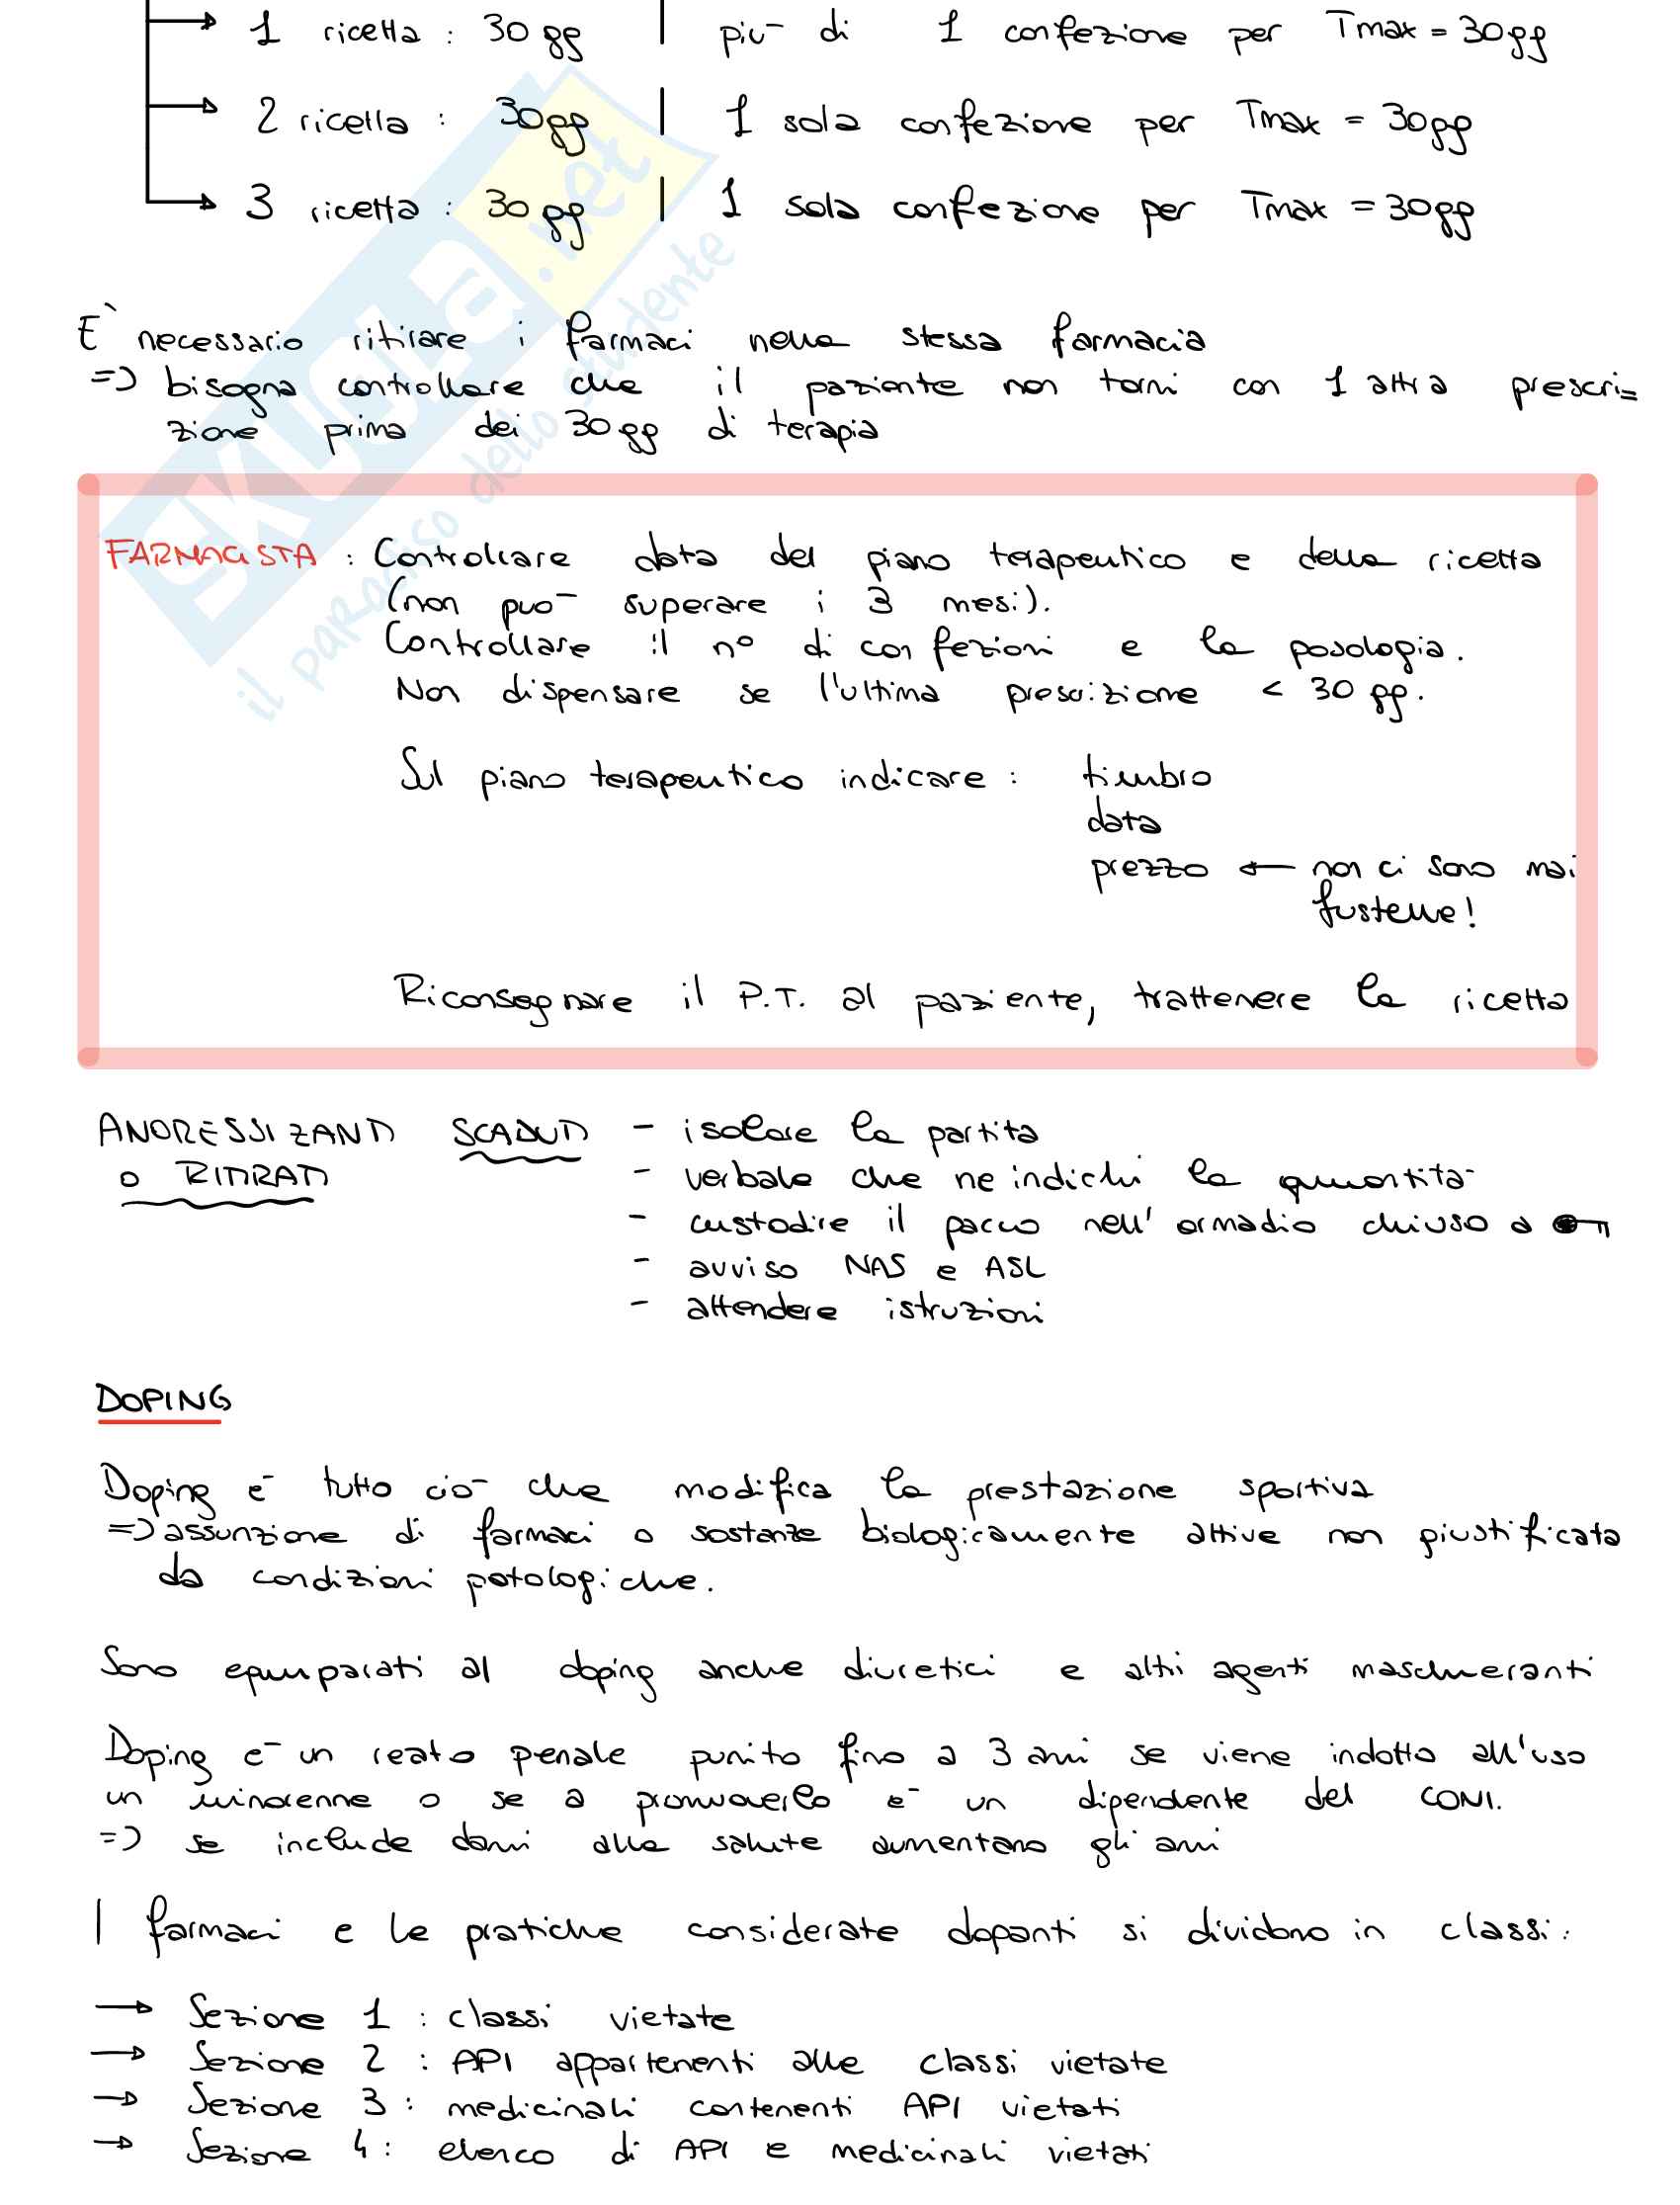 → 1 ricetta : 30 gg | piu- di 1 confezione per Tmax = 30gg
→ 2 ricetta : 30gg | 1 sola confezione per Tmax = 30gg
→ 3 ricetta : 30 gg | 1 sola confezione per Tmax = 30gg
E` necessario ritirare i farmaci nella stessa farmacia
=> bisogna controllare che il paziente non torni con 1 altra prescri=
zione prima dei 30 gg di terapia
FARMACISTA : Controllare data del piano terapeutico e della ricetta
(non puo- superare i 3 mesi).
Controllare il n° di confezioni e la posologia.
Non dispensare se l'ultima prescrizione < 30 gg.
Sul piano terapeutico indicare : timbro
data
prezzo ← non ci sono mai
fustelle!
Riconsegnare il P.T. al paziente, trattenere la ricetta
ANORESSIZZANTI SCADUTI - isolare la partita
o RITIRATI - verbale che ne indichi la quantita-
- custodire il pacco nell' armadio chiuso a
- avviso NAS e ASL
- attendere istruzioni
DOPING
Doping e- tutto cio- che modifica la prestazione sportiva
=> assunzione di farmaci o sostanze biologicamente attive non giustificata
da condizioni patologiche.
Sono equiparati al doping anche diuretici e altri agenti mascheranti
Doping e- un reato penale punito fino a 3 anni se viene indotto all'uso
un minorenne o se a promuoverlo e- un dipendente del CONI.
=> se include danni alla salute aumentano gli anni
I farmaci e le pratiche considerate dopanti si dividono in classi:
→ Sezione 1 : classi vietate
→ Sezione 2 : API appartenenti alle classi vietate
→ Sezione 3 : medicinali contenenti API vietati
→ Sezione 4 : elenco di API e medicinali vietati
SKUOLa.net
il paradiso dello studente